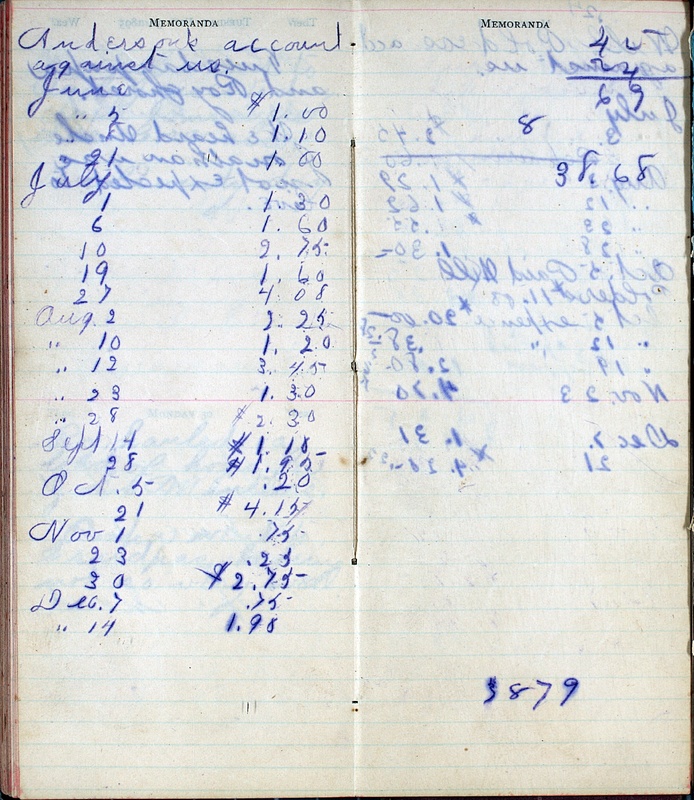 MEMORANDA
Anderson's account
against us.
June
" 5 $1.00
" 2 1.10
21 " 1 00
July
1 1 30
6 1. 60
10 2. 75
19 1. 60
27 4 08
Aug. 2 2. 25
" 10 1. 20
" 12 3. 45
" 23 1. 30
" 28 $2. 30
Sept 14 $1. 18
28 $1. 95
Oct. 5 .20
21 $4.15
Nov 1 .75
23 .25
30 $2.75
Dec. 7 .75
" 14 1.98
MEMORANDA
45
24
69
8
38, 68
3879